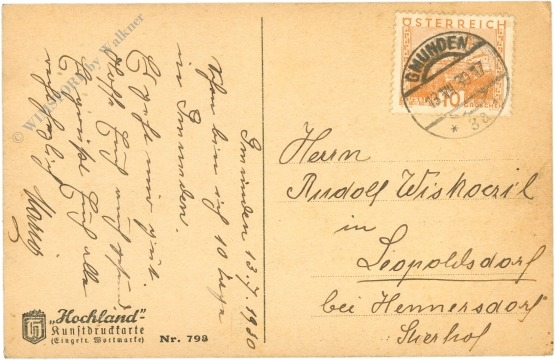 Gmunden 13.7.1930
Schon bin ich 10 Tage
in Gmunden.
Es geht mir gut.
Hoffe Euch auch
Es grüßt Euch alle
recht herzlich
ÖSTERREICH
GMUNDEN
10
* 3a
Herrn
Rudolf Wiskocil
in
Leopoldsdorf
bei Hennersdorf
"Hochland"
Kunstdruckkarte
(Eingetr. Wortmarke)
Nr. 793
© WINSTORE by Walkner